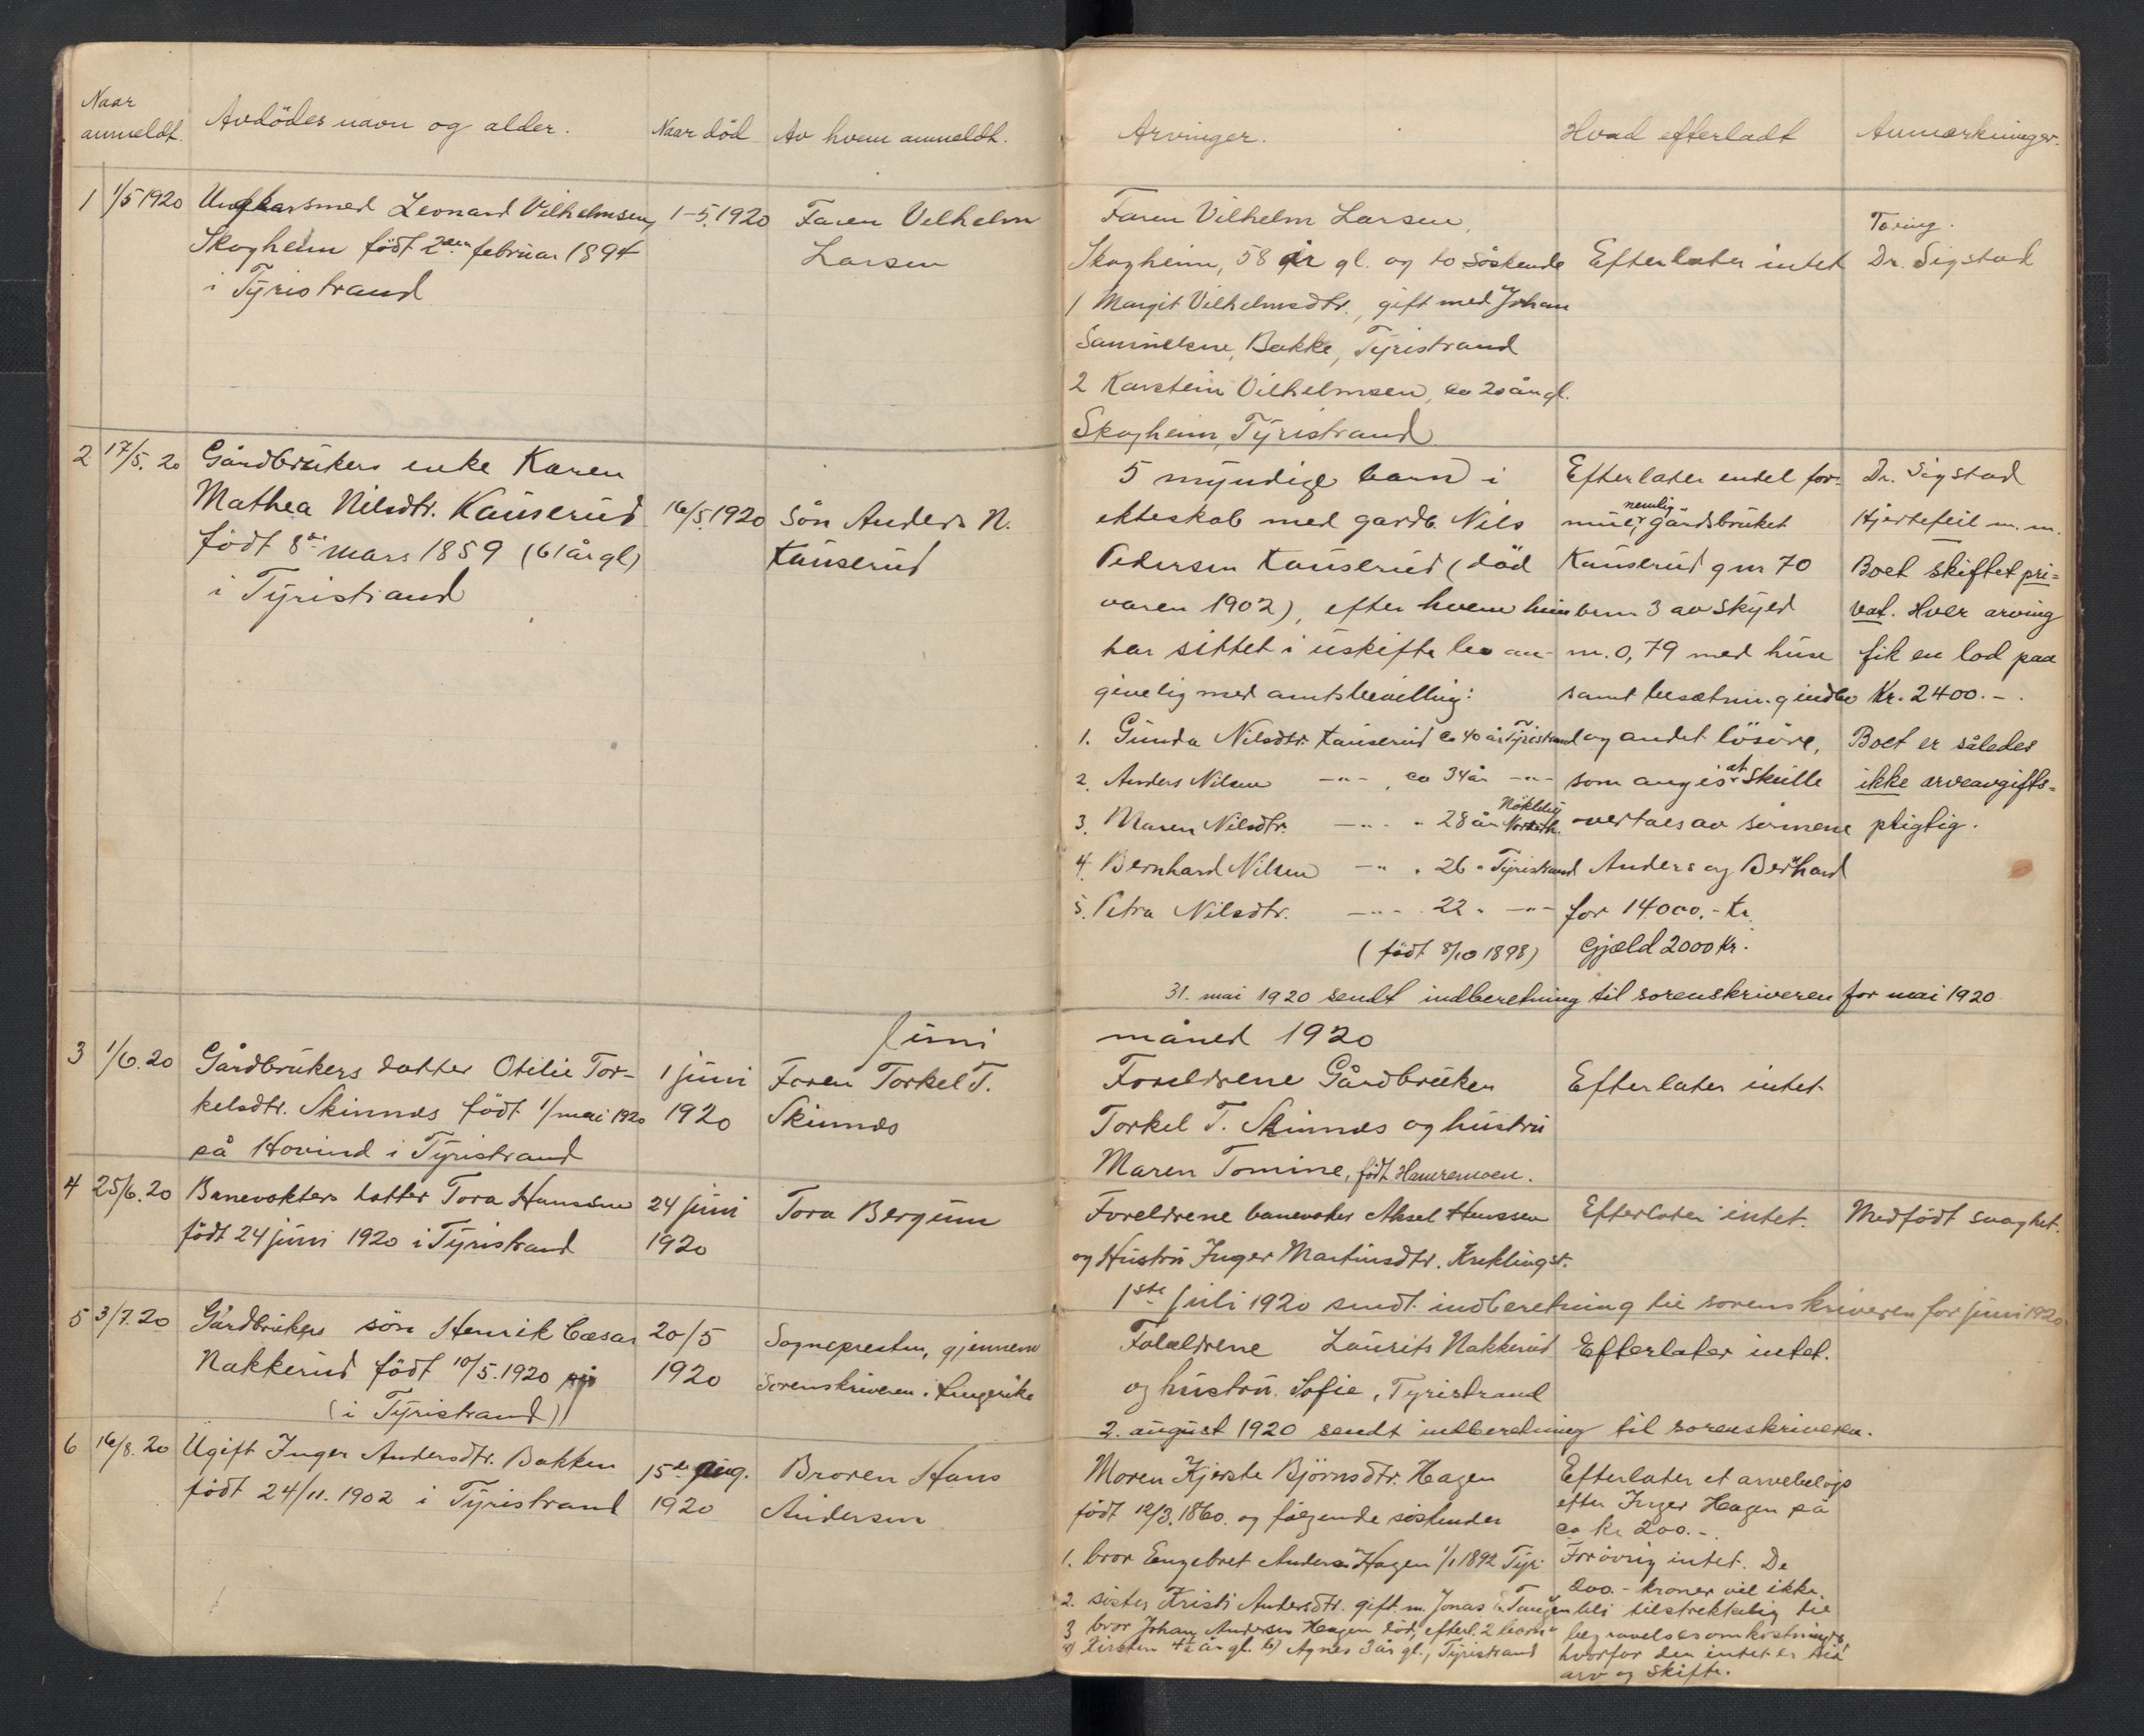 Naar
anmeldt.
Avdödes navn og alder.
Naar död
Av hvem anmeldt.
Arvinger.
Hvad efterladt
Anmærkninger.
1
1/5 1920
Ungkarsmed Leonard Vilhelmsen,
Skogheim födt 2den februar 1894
i Tyristrand
1-5.1920
Faren Velhelm
Larsen
Faren Vilhelm Larsen,
Skogheim, 58 år gl. og to söskende
1 Margit Vilhelmsdtr., gift med Johan
Samuelsne, Bakke, Tyristrand
2 Karstein Vilhelmsen, ca 20 år gl.
Skogheim, Tyristrand
Efterlater intet
Tæring.
Dr. Sigstad
2
17/5. 20
Gårdbrukers enke Karen
Mathea Nilsdtr. Kauserud
födt 8de mars 1859 (61 år gl)
i Tyristrand
16/5 1920
Sön Anders N.
Kauserud
5 myndige barn i
ekteskab med gardb. Nils
Pedersen Kauserud (död
våren 1902), efter hvem hun
har sittet i uskifte bo an-
givelig med amtsbevilling:
1. Gunda Nilsdtr. Kauserud ca 40 år Tyristrand
2. Anders Nilsen -"- , ca 34 år -"-
3. Maren Nilsdtr. -"- " 28 år Nökleby Norderh.
4. Bernhard Nilsen -"- " 26 " Tyristrand
5. Petra Nilsdtr. -"- 22 " -"-
(födt 8/10 1898)
Efterlater endel for-
mue, nemlig gårdsbruket
Kauserud gnr 70
brnr. 3 av skyld
m. 0,79 med huse
samt besætning indbo
og andet lösöre,
som angis at skulle
overtaes av sönnene
Anders og Bernhard
for 14000.- kr.
Gjæld 2000 Kr.
Dr. Sigstad
Hjertefeil m. m.
Boet skiftet pri=
vat. Hver arving
fik en lod paa
Kr. 2400.-.
Boet er således
ikke arveavgifts=
pligtig.
31. mai 1920 sendt indberetning til sorenskriveren for mai 1920
Juni
måned 1920
3
1/6.20
Gårdbrukers datter Otilie Tor-
kelsdtr. Skinnes födt 1/mai 1920
på Hovind i Tyristrand
1 juni
1920
Faren Torkel T.
Skinnes
Foreldrene Gårdbruker
Torkel T. Skinnes og hustru
Maren Tomine, födt Hamremoen.
Efterlater intet
4
25/6.20
Banevokters datter Tora Hanssen
födt 24 juni 1920 i Tyristrand
24 juni
1920
Tora Bergum
Foreldrene banevokter Aksel Hanssen
og Hustru Inger Martinsdtr. Kreklingst.
Efterlater intet.
Medfödt svaghet.
1ste juli 1920 sendt indberetning til sorenskriveren for juni 1920
5
3/7.20
Gårdbrukers sön Henrik Cæsar
Nakkerud födt 10/5.1920
(i Tyristrand)
20/5
1920
Sognepresten, gjennem
Sorenskriveren i Ringerike
Forældrene Laurits Nakkerud
og hustru Sofie, Tyristrand
Efterlater intet.
2. august 1920 sendt indberetning til sorenskriveren.
6
16/8. 20
Ugift Inger Andersdtr. Bakken
födt 24/11. 1902 i Tyristrand
15de aug.
1920
Broren Hans
Andersen
Moren Kjerste Björnsdtr. Hagen
födt 12/3. 1860. og fölgende söskender
1. bror Engebret Anders. Hagen 1/1 1892 Tyr.
2. söster Kristi Andersdtr. gift m. Jonas E. Tangen
3 bror Johan Andersen Hagen död, efterl. 2 barn
a) Kirsten 4½ år gl. b) Agnes 3 år gl., Tyristrand
Efterlater et arvebelöp
efter Inger Hagen på
ca kr 200.-.
For övrig intet. De
200.- kroner vil ikke
bli tilstrekkelig til
begravelsesomkostninger
hvorfor der intet er til
arv og skifte.